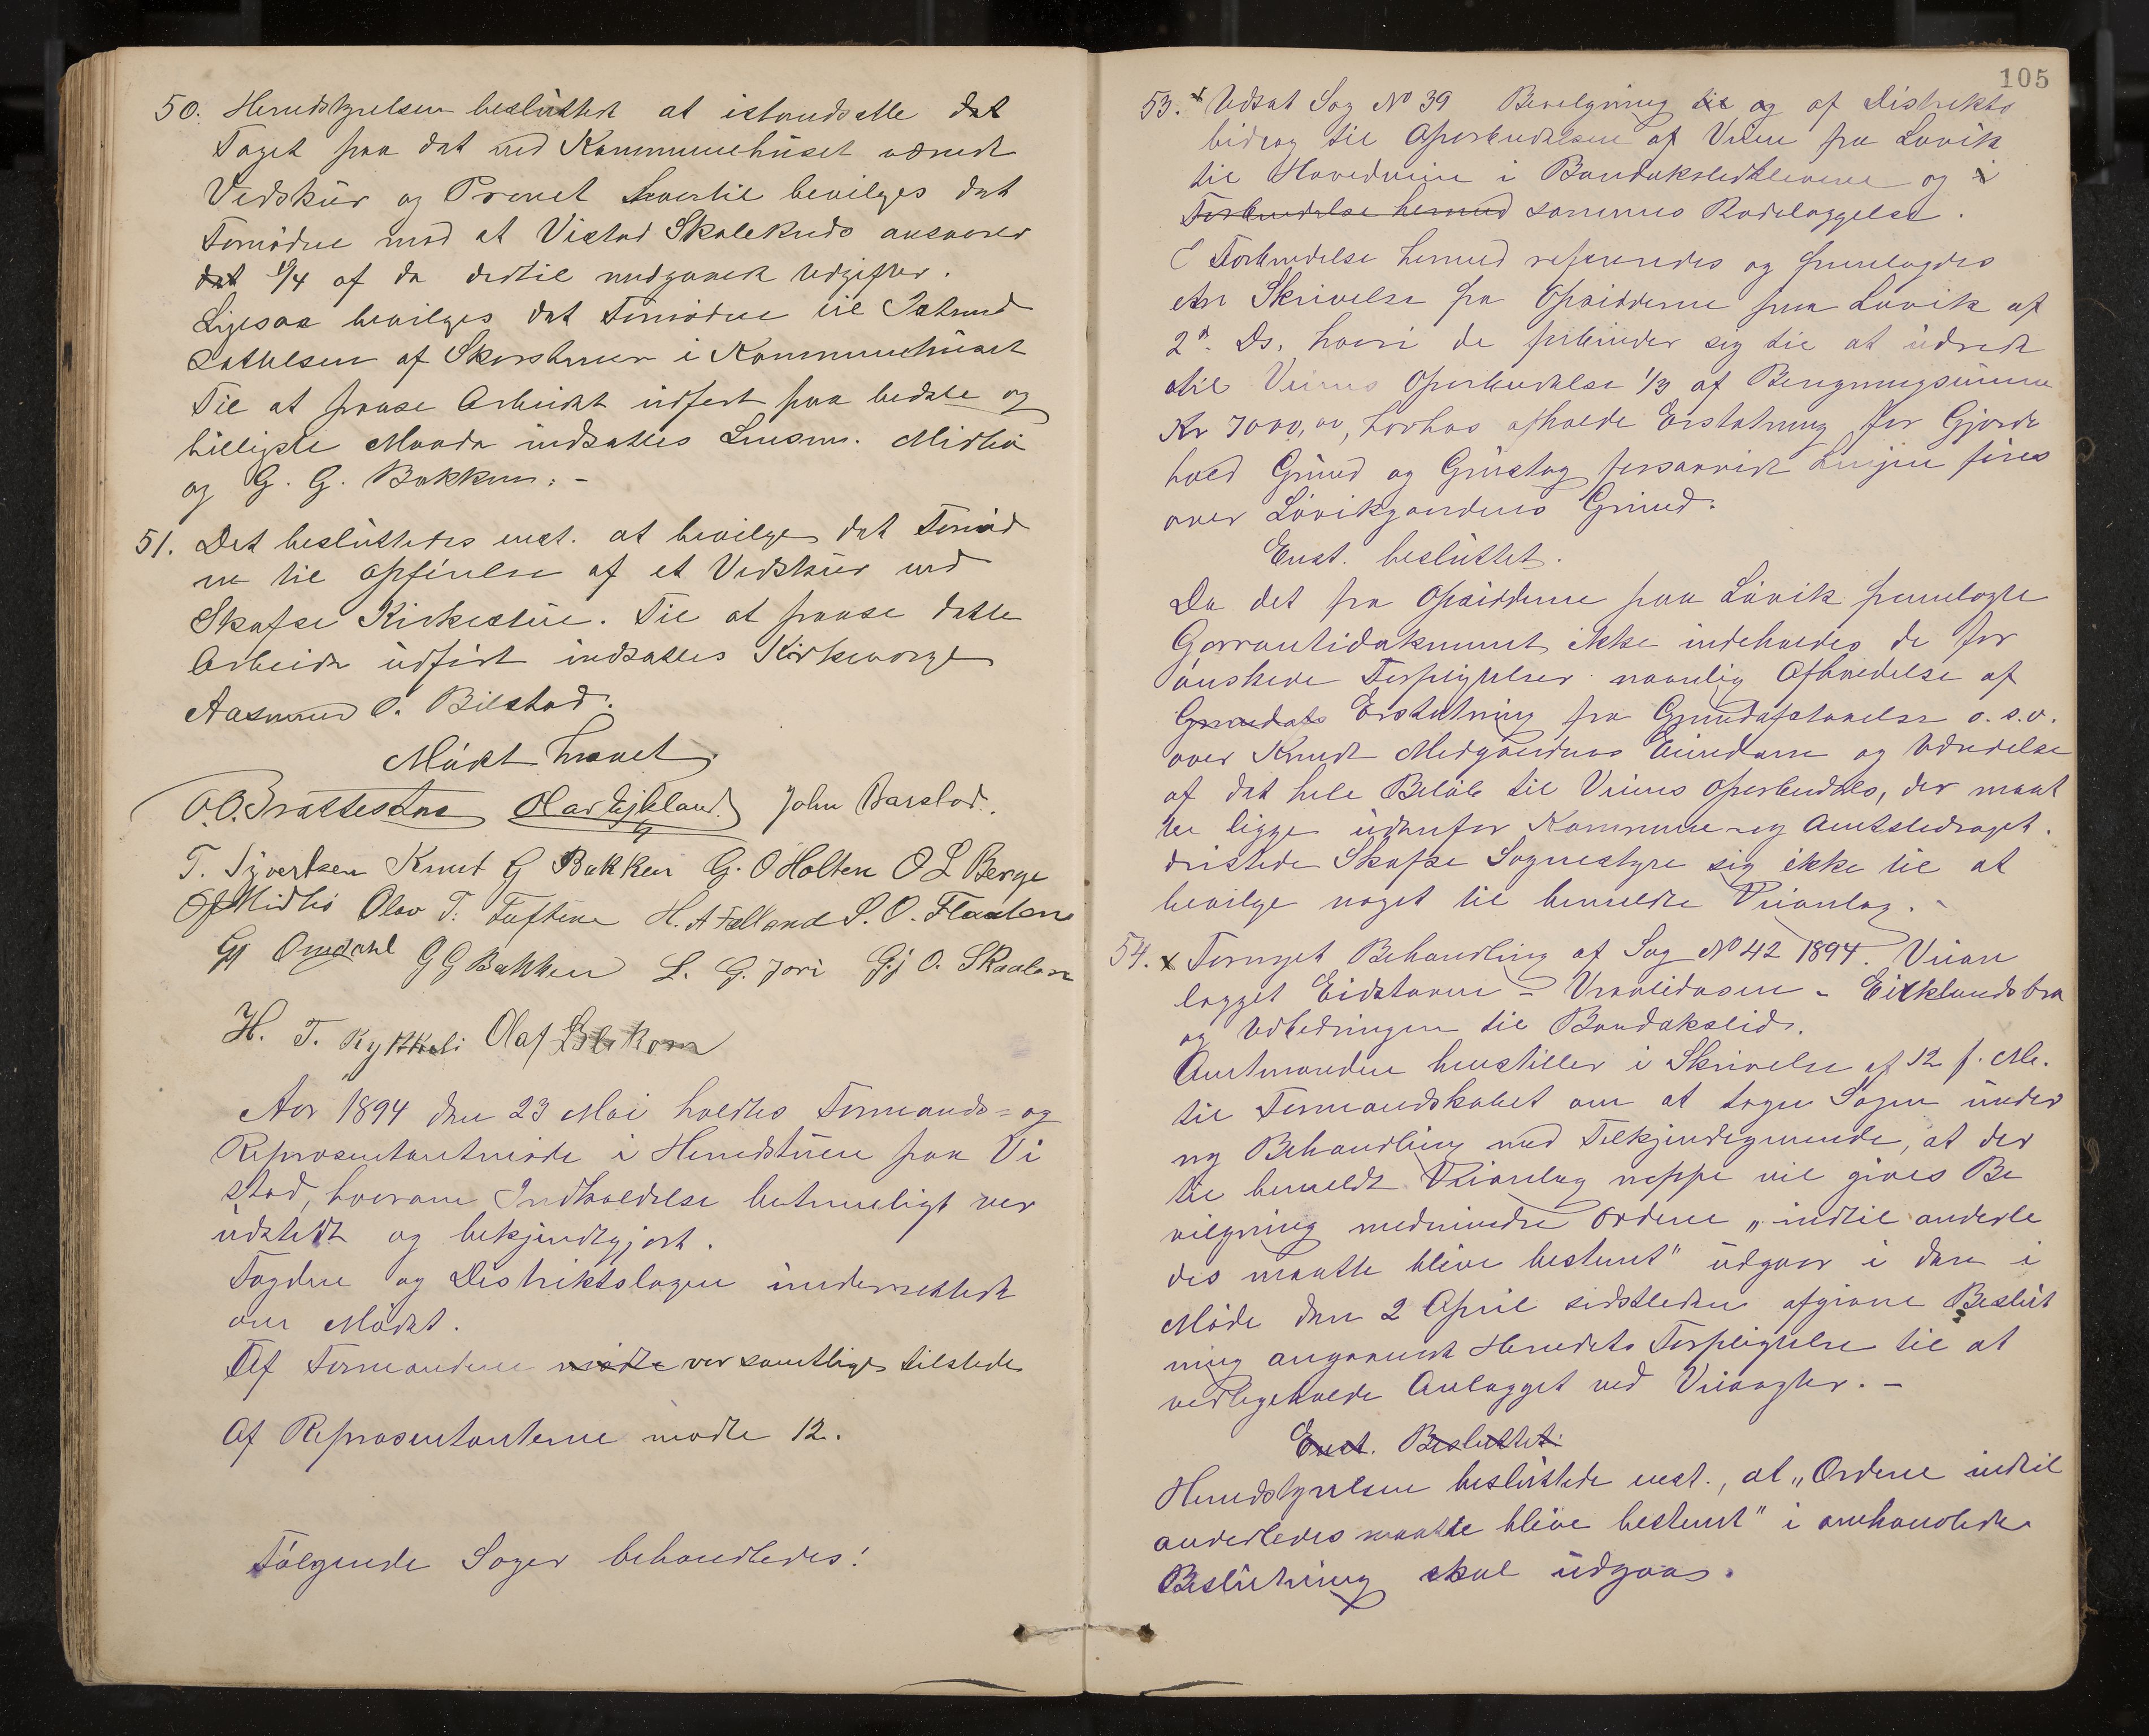 50. Herredstyrelsen besluttet at istandsætte det
Taget paa det ved Kommunehuset værende
Vedskur og Privet hvertil bevilges det
Fornødne mod at Vistad Skolekreds ansvarer
det 1/4 af de dertil medgaaede Udgifter.
Ligesaa bevilges det Fornødne til Istand
sættelsen af Skorstenen i Kommunehuset
Til at faae Arbeidet udført paa bedste og
billigste Maade indsattes Midbø
og G. G. Bakken. -
51. Det besluttedes enst. at bevilge det Fornød
ne til Opførelse af et Vedskur ved
Skafse Kirkestue. Til at faae dette
Arbeide udført indsattes Kirkeværge
Aasmund O. Bilstad.
Mødet hævet
O. O. Brattestaa Olav Eikland. John Barstad.
T. Syvertsen Knut G Bakken G. O Holten O L Berge
Midbø Olav T. Tuftene H. A Fælland S. O. Flaaten
Omdahl G G Bakken L. G. Jori Gj O. Skaalen
H. T. Rykkeli Olaf
Aar 1894 den 23 Mai holdtes Formands- og
Repræsentantmøde i Herredstuen paa Vi
stad, hvorom Indkaldelse betimeligt var
udstedt og bekjendtgjort.
Fogden og Distriktslægen underrettede
om Mødet.
Af Formændene mødte var samtlige tilstede
Af Repræsentanterne mødte 12.
Følgende Sager behandledes:
105
53. x Udsat Sag No 39 Bevilgning til og af Distrikts
bidrag til Oparbeidelsen af Veien fra Lavik
til Hovedveien i Bandakslidkleivene og i
Forbindelse hermed sammes Rodelæggelse.
I Forbindelse hermed refereredes og fremlagdes
en Skrivelse fra Opsidderne paa Lavik af
2d Ds. hvori de forbinder sig til at udrede
til Veiens Oparbeidelse 1/3 af Beregningssummen
Kr 7000,00, afholde Erstatning for Gjerde
hold Grund og Grustag forsaavidt Linjen føres
over Lavikgaardens Grund.
Enst. besluttet.
Da det fra Opsidderne paa Lavik fremlagte
Garantidokument ikke indeholdes de for
ønskede Forpligtelser navnlig Afholdelse af
Erstatning for Grundafstaaelse o. s. v.
over Knudt Medgaardens Eiendom og Udredelse
af det hele Beløb til Veiens Oparbeidels, der maat
te ligge udenfor Kommune- og Amtsbidraget.
dristede Skafse Sognestyre sig ikke til at
bevilge noget til bemeldte Veianlæg. -
54. x Fornyet Behandling af Sag No 42 1894. Veian
lægget Eidstaven - Vraaliosen - Eiklandsbra
og Udbedringen til Bandakslid.
Amtmanden henstiller i Skrivelse af 12 f. M.
til Formandskabet om at tage Sagen under
ny Behandling med Tilkjendegivende, at der
til bemeldt Veianlæg neppe vil gives Be
vilgning medmindre Ordene „indtil anderle
des maatte blive bestemt" udgaar i den i
Møde den 2 April sidstleden afgivne Beslut
ning angaaende Herredets Forpligtelse til at
vedligeholde Anlægget ved Veivogter. -
Enst. Besluttet:
Herredstyrelsen besluttede enst., at „Ordene indtil
anderledes maatte blive bestemt" i omhandlede
Beslutning skal udgaa.